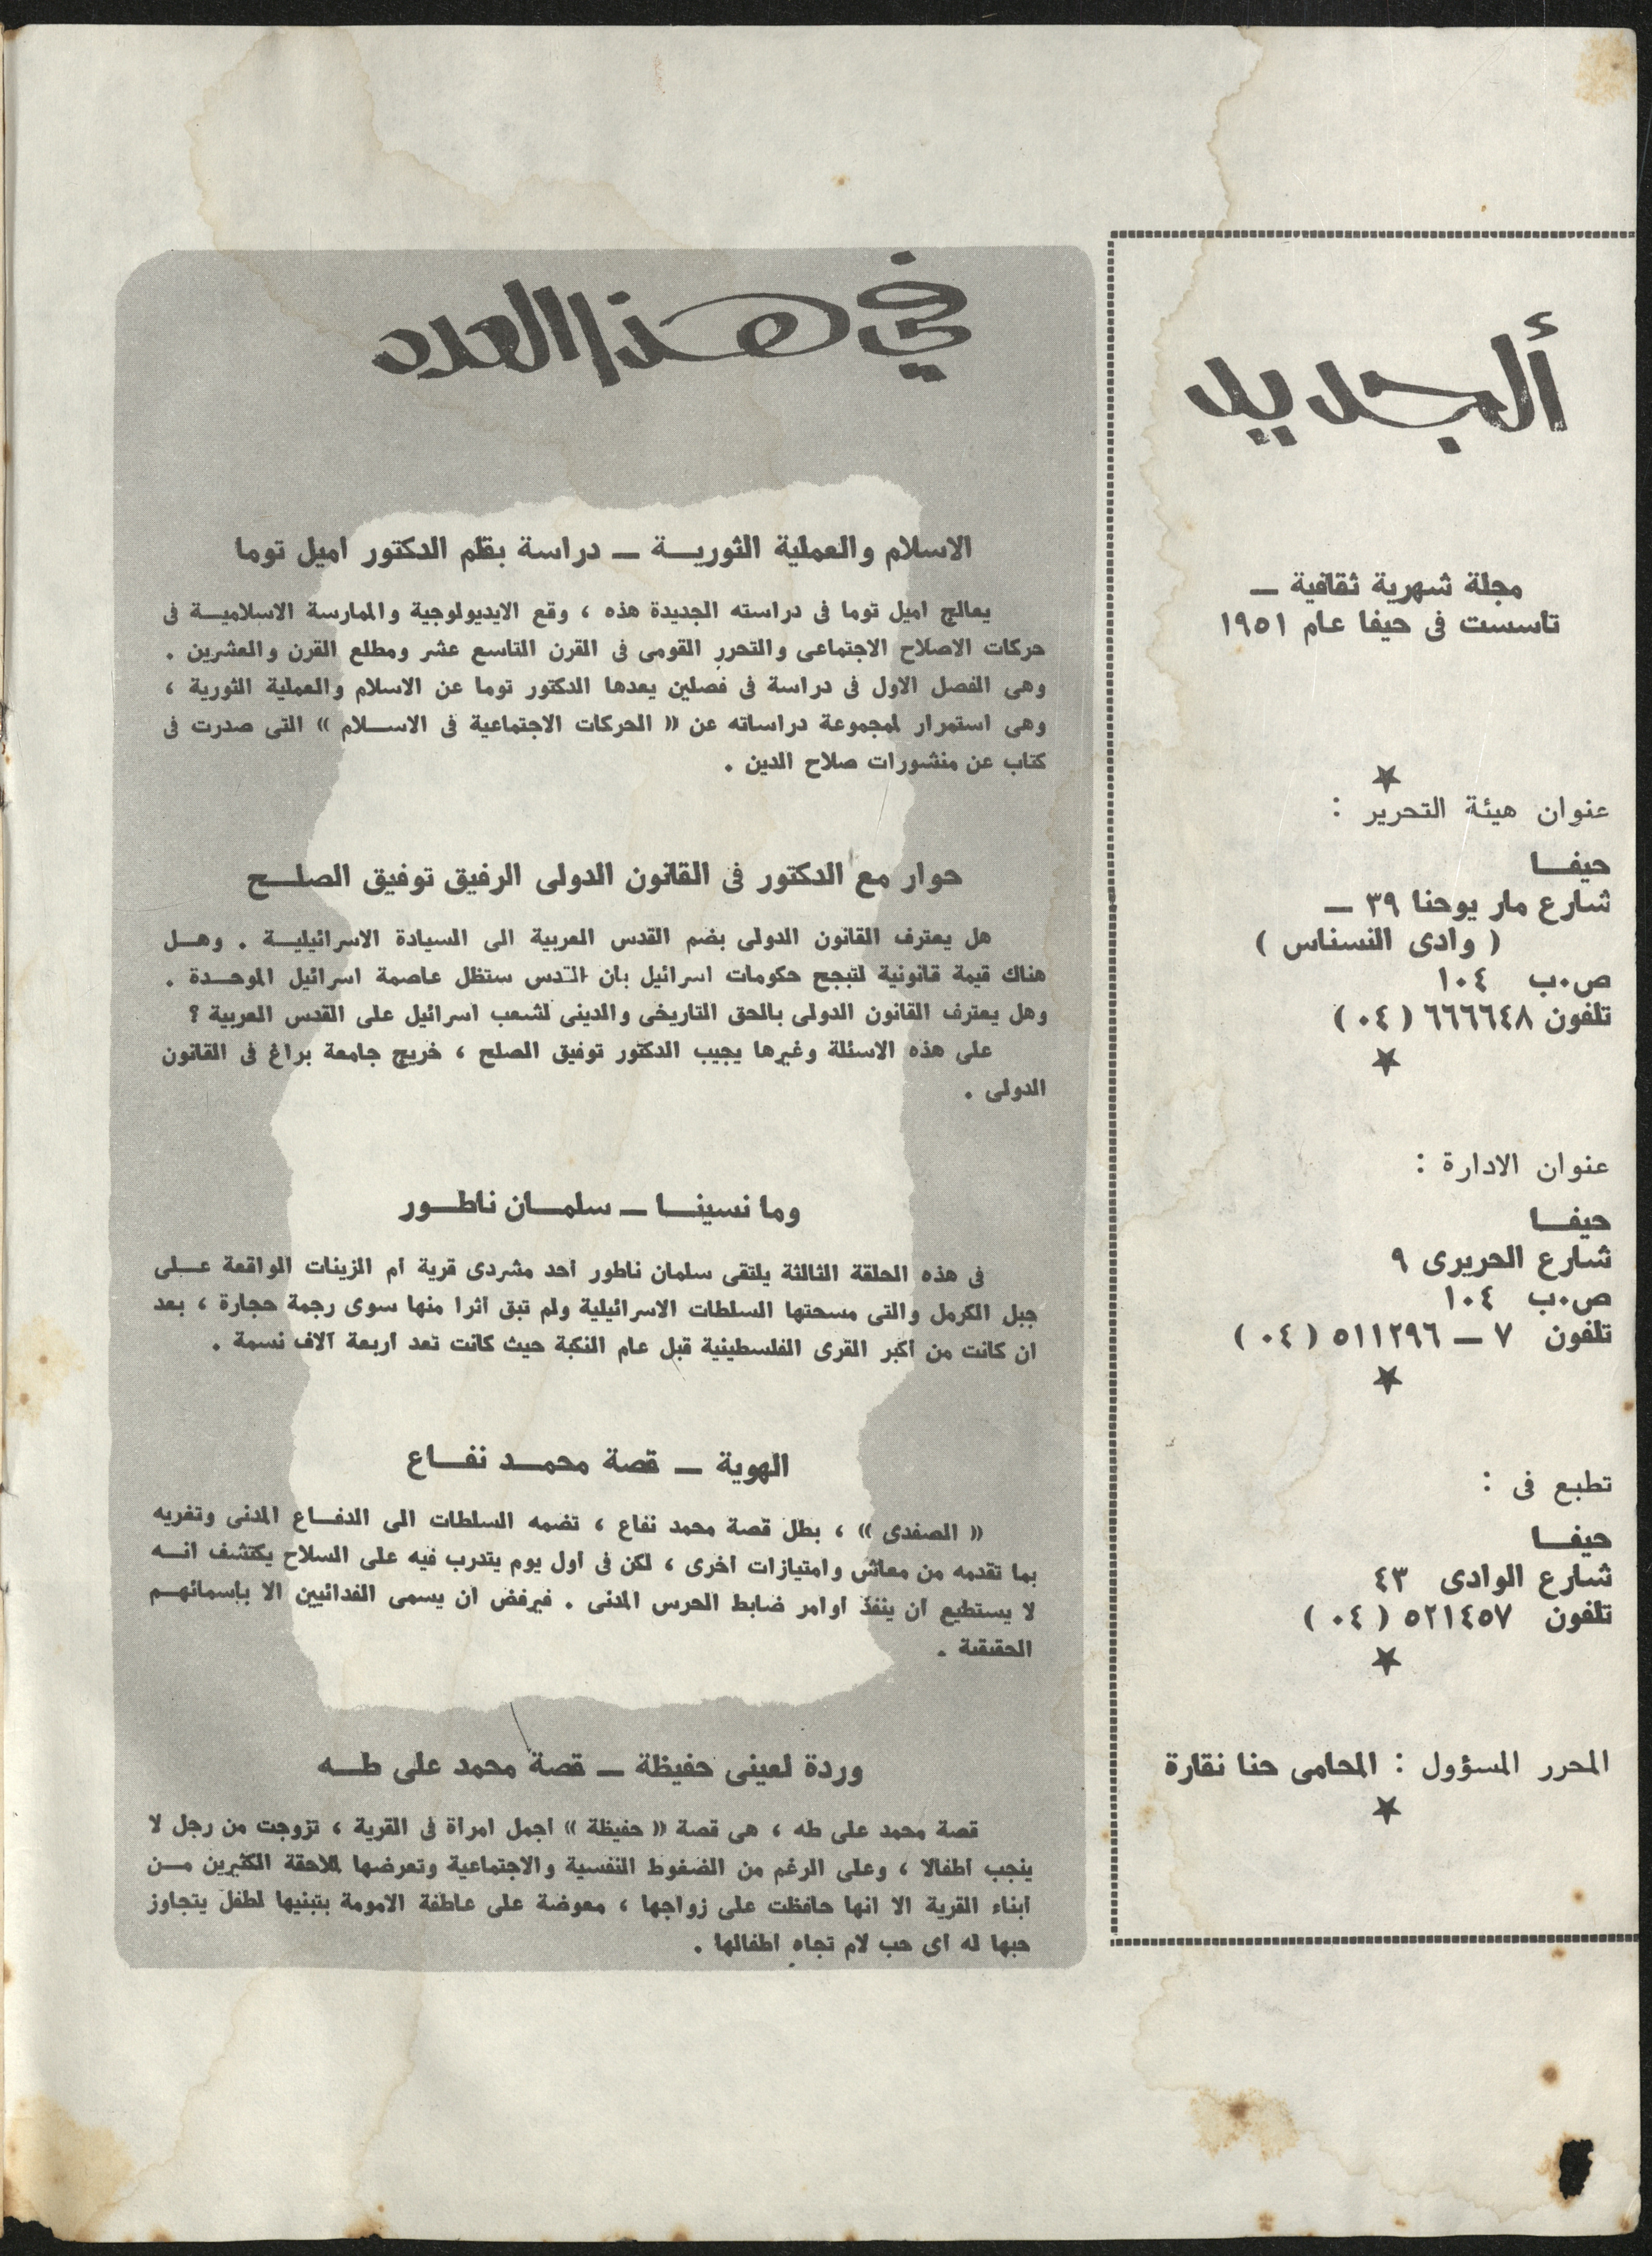 ألجديد
مجلة شهرية ثقافية —
تأسست فى حيفا عام ١٩٥١
عنوان هيئة التحرير :
حيفــا
شارع مار يوحنا ٣٩ —
( وادى النسناس )
ص.ب ١٠٤
تلفون ٦٦٦٦٤٨ ( ٠٤ )
عنوان الادارة :
حيفــا
شارع الحريرى ٩
ص.ب ١٠٤
تلفون ٧ — ٥١١٢٩٦ ( ٠٤ )
تطبع فى :
حيفــا
شارع الوادى ٤٣
تلفون ٥٢١٤٥٧ ( ٠٤ )
المحرر المسؤول : المحامى حنا نقارة
في هذا العدد
الاسلام والعملية الثوريــة — دراسة بقلم الدكتور اميل توما
يعالج اميل توما فى دراسته الجديدة هذه ، وقع الايديولوجية والممارسة الاسلاميــة فى
حركات الاصلاح الاجتماعى والتحرر القومى فى القرن التاسع عشر ومطلع القرن والعشرين .
وهى الفصل الاول فى دراسة فى فصلين يعدها الدكتور توما عن الاسلام والعملية الثورية ،
وهى استمرار لمجموعة دراساته عن « الحركات الاجتماعية فى الاســلام » التى صدرت فى
كتاب عن منشورات صلاح الدين .
حوار مع الدكتور فى القانون الدولى الرفيق توفيق الصلــح
هل يعترف القانون الدولى بضم القدس العربية الى السيادة الاسرائيليــة . وهــل
هناك قيمة قانونية لتبجح حكومات اسرائيل بأن القدس ستظل عاصمة اسرائيل الموحــدة .
وهل يعترف القانون الدولى بالحق التاريخى والدينى لشعب اسرائيل على القدس العربية ؟
على هذه الاسئلة وغيرها يجيب الدكتور توفيق الصلح ، خريج جامعة براغ فى القانون
الدولى .
وما نسينــا — سلمــان ناطــور
فى هذه الحلقة الثالثة يلتقى سلمان ناطور أحد مشردى قرية أم الزينات الواقعة عــلى
جبل الكرمل والتى مسحتها السلطات الاسرائيلية ولم تبق أثرا منها سوى رجمة حجارة ، بعد
ان كانت من أكبر القرى الفلسطينية قبل عام النكبة حيث كانت تعد أربعة آلاف نسمة .
الهوية — قصة محمــد نفــاع
« الصفدى » ، بطل قصة محمد نفاع ، تضمه السلطات الى الدفــاع المدنى وتغريه
بما تقدمه من معاش وامتيازات أخرى ، لكن فى أول يوم يتدرب فيه على السلاح يكتشف انــه
لا يستطيع أن ينفذ أوامر ضابط الحرس المدنى . فيرفض أن يسمى الفدائيين الا بأسمائهــم
الحقيقية .
وردة لعينى حفيظة — قصة محمد على طــه
قصة محمد على طه ، هى قصة « حفيظة » أجمل امرأة فى القرية ، تزوجت من رجل لا
ينجب أطفالا ، وعلى الرغم من الضغوط النفسية والاجتماعية وتعرضها لملاحقة الكثيرين مــن
أبناء القرية الا انها حافظت على زواجها ، معوضة على عاطفة الامومة بتبنيها لطفل يتجاوز
حبها له أى حب لأم تجاه أطفالها .